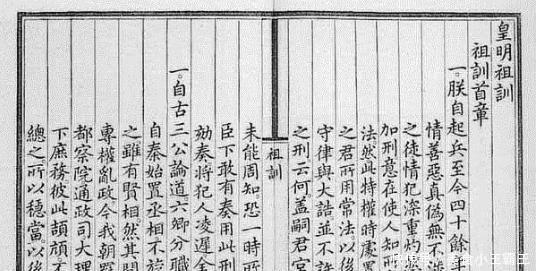 皇明祖訓
祖訓首章
一。朕自起兵至今四十餘
情善惡真偽無不涉
之徒情犯深重灼然
加刑意在使人知所
法然此特權時處置
之君所用常法以後
守律與大誥並不許
之刑云何蓋嗣君宮
未能周知恐一時所
臣下敢有奏用此刑
劾奏將犯人凌遲全
一。自古三公論道六卿分職
自秦始置丞相不旋
之雖有賢相然其間
專權亂政今我朝罷
都察院通政司大理
下庶務彼此頡頏不
總之所以穩當以後
祖訓